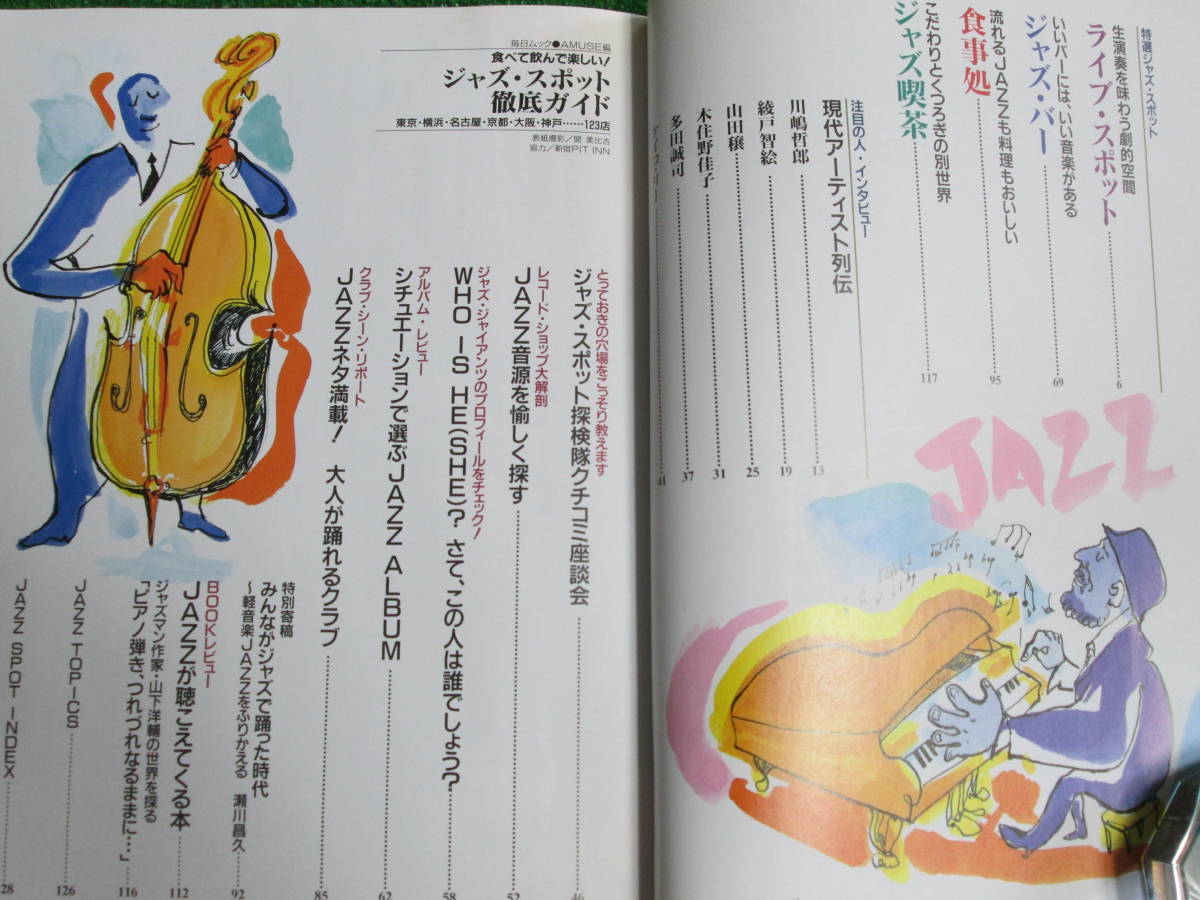 特選ジャズ・スポット
生演奏を味わう劇的空間
ライブ・スポット
6
いいバーには、いい音楽がある
ジャズ・バー
69
流れるJAZZも料理もおいしい
食事処
95
こだわりとくつろぎの別世界
ジャズ喫茶
117
注目の人・インタビュー
現代アーティスト列伝
川嶋哲郎
13
綾戸智絵
19
山田穣
25
木住野佳子
31
多田誠司
37
ケイコ・リー
41
JAZZ
毎日ムック●AMUSE編
食べて飲んで楽しい!
ジャズ・スポット
徹底ガイド
東京・横浜・名古屋・京都・大阪・神戸……123店
表紙撮影/関 美比古
協力/新宿PIT INN
とっておきの穴場をこっそり教えます
ジャズ・スポット探検隊クチコミ座談会
46
レコード・ショップ大解剖
JAZZ音源を愉しく探す
52
ジャズ・ジャイアンツのプロフィールをチェック!
WHO IS HE(SHE)? さて、この人は誰でしょう?
58
アルバム・レビュー
シチュエーションで選ぶJAZZ ALBUM
62
クラブ・シーン・リポート
JAZZネタ満載! 大人が踊れるクラブ
85
特別寄稿
みんながジャズで踊った時代
〜軽音楽JAZZをふりかえる 瀬川昌久
92
BOOKレビュー
JAZZが聴こえてくる本
112
ジャズマン作家・山下洋輔の世界を探る
「ピアノ弾き、つれづれなるままに…」
116
JAZZ TOPICS
126
JAZZ SPOT INDEX
28